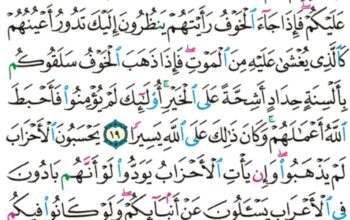 عَلَيْكُمْ ۖ فَإِذَا جَآءَ ٱلْخَوْفُ رَأَيْتَهُمْ يَنظُرُونَ إِلَيْكَ تَدُورُ أَعْيُنُهُمْ
كَٱلَّذِى يُغْشَىٰ عَلَيْهِ مِنَ ٱلْمَوْتِ ۖ فَإِذَا ذَهَبَ ٱلْخَوْفُ سَلَقُوكُم
بِأَلْسِنَةٍ حِدَادٍ أَشِحَّةً عَلَى ٱلْخَيْرِ ۚ أُو۟لَٰٓئِكَ لَمْ يُؤْمِنُوا۟ فَأَحْبَطَ
ٱللَّهُ أَعْمَٰلَهُمْ ۚ وَكَانَ ذَٰلِكَ عَلَى ٱللَّهِ يَسِيرًا ١٩ يَحْسَبُونَ ٱلْأَحْزَابَ
لَمْ يَذْهَبُوا۟ ۖ وَإِن يَأْتِ ٱلْأَحْزَابُ يَوَدُّوا۟ لَوْ أَنَّهُم بَادُونَ
فِى ٱلْأَعْرَابِ يَسْـَٔلُونَ عَنْ أَنۢبَآئِكُمْ ۖ وَلَوْ كَانُوا۟ فِيكُم